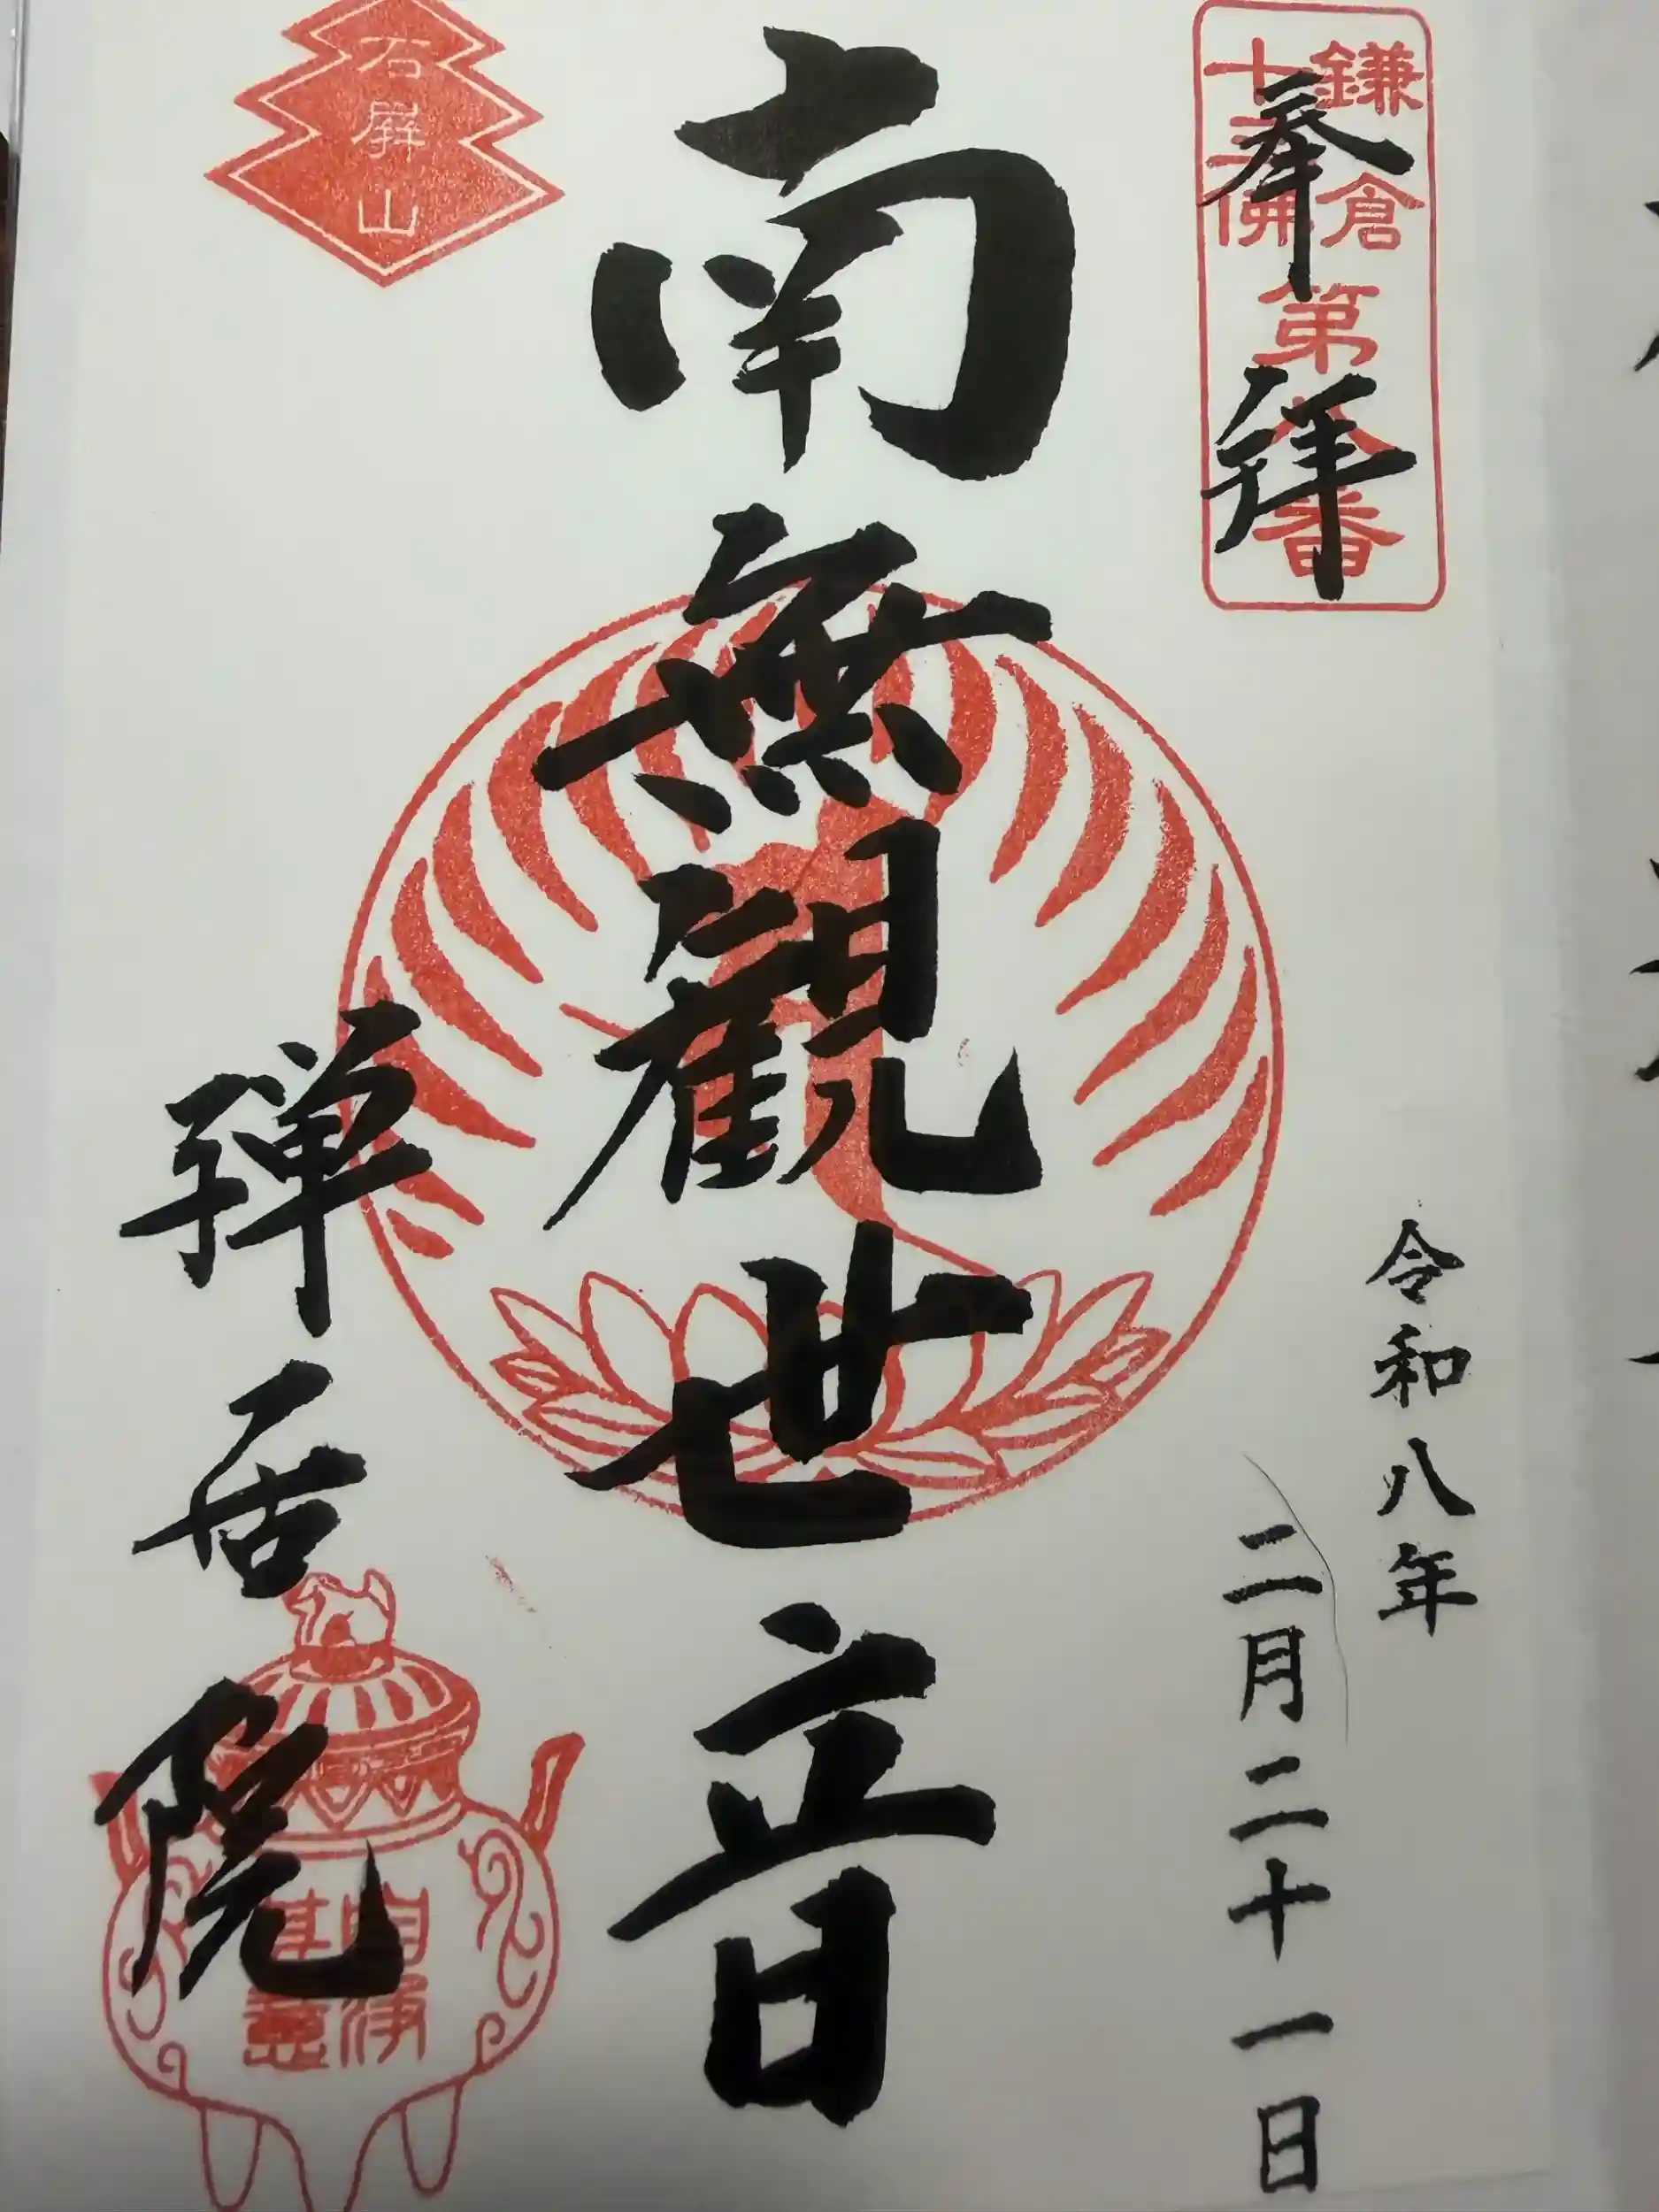 鎌倉
十三佛
第八番
奉拝
令和八年
二月二十一日
南無觀世音
石屏山
禅居院